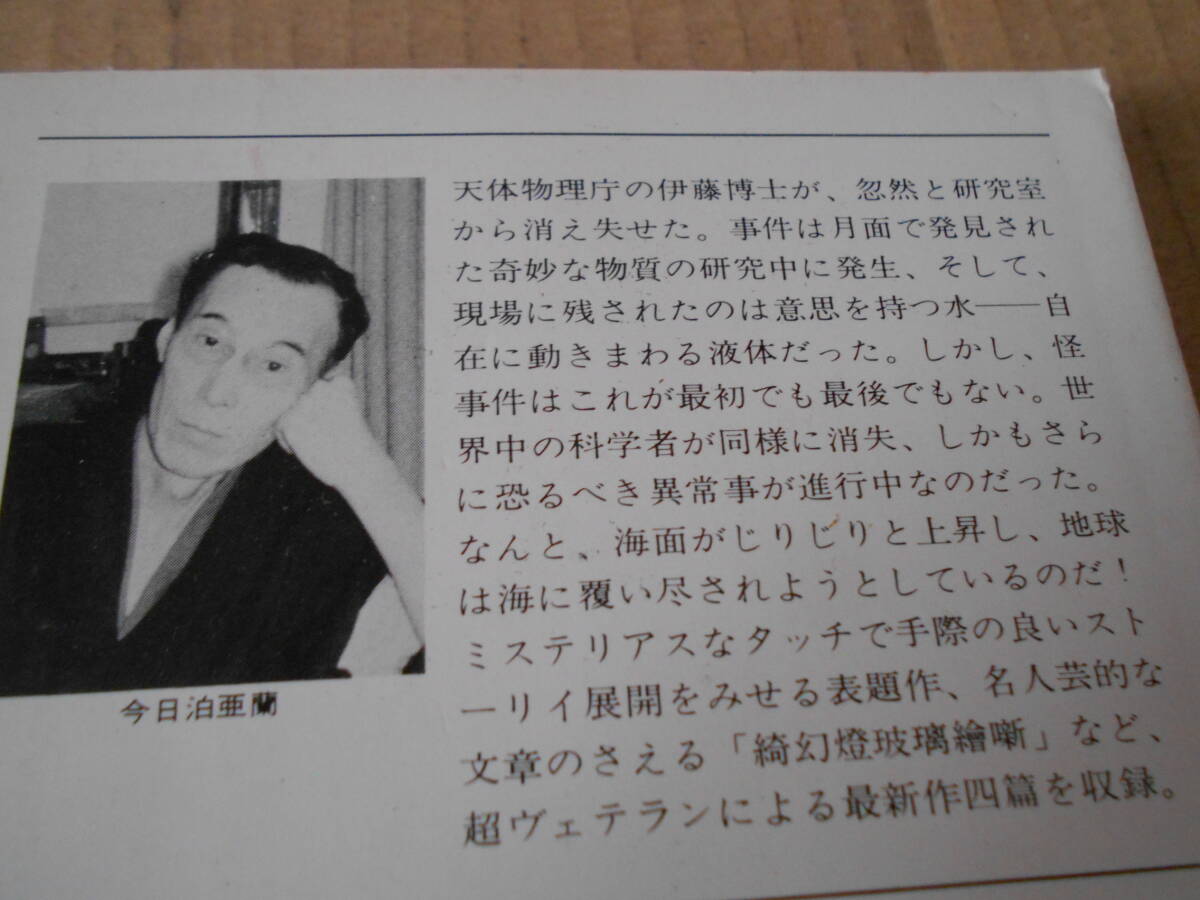 天体物理庁の伊藤博士が、忽然と研究室
から消え失せた。事件は月面で発見され
た奇妙な物質の研究中に発生、そして、
現場に残されたのは意思を持つ水――自
在に動きまわる液体だった。しかし、怪
事件はこれが最初でも最後でもない。世
界中の科学者が同様に消失、しかもさら
に恐るべき異常事が進行中なのだった。
なんと、海面がじりじりと上昇し、地球
は海に覆い尽されようとしているのだ！
ミステリアスなタッチで手際の良いスト
ーリイ展開をみせる表題作、名人芸的な
文章のさえる「綺幻燈玻璃繪噺」など、
超ヴェテランによる最新作四篇を収録。
今日泊亜蘭